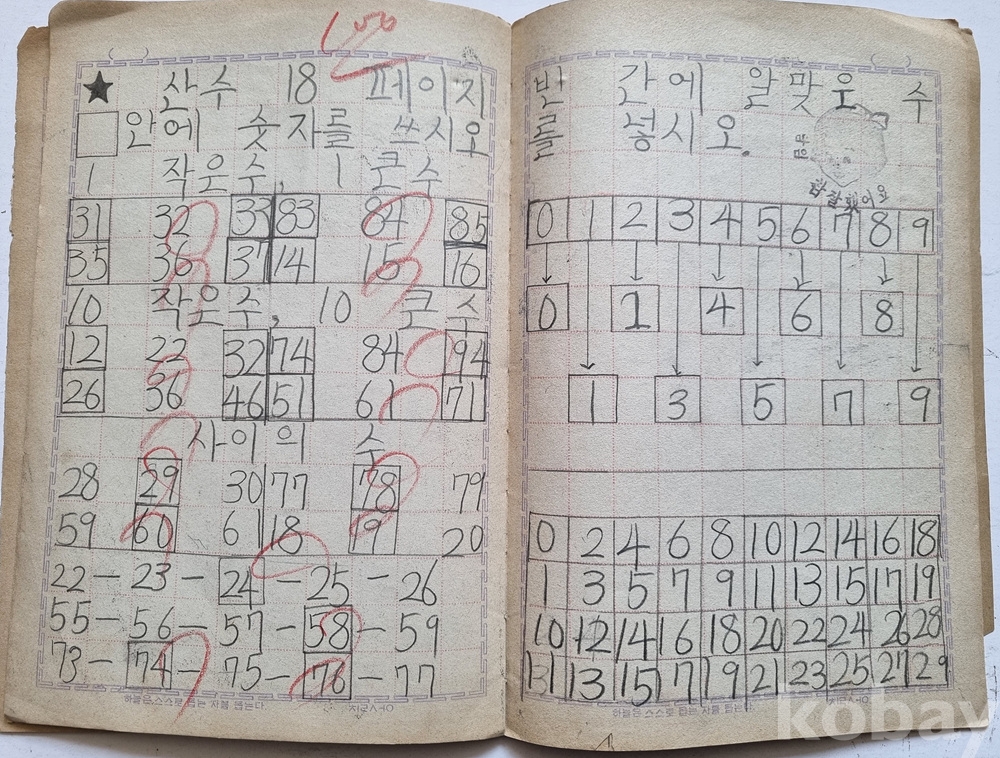 100
★ 산수 18 페이지
□ 안에 숫자를 쓰시오
1 작은수, 1 큰수
31 32 33 83 84 85
35 36 37 14 15 16
10 작은수, 10 큰수
12 22 32 74 84 94
26 36 46 51 61 71
사이의 수
28 29 30 77 78 79
59 60 61 18 19 20
22 - 23 - 24 - 25 - 26
55 - 56 - 57 - 58 - 59
73 - 74 - 75 - 76 - 77
하늘은 스스로 돕는 자를 돕는다
빈 간에 알맞은 수
들 넣시오.
참 잘했어요
0 1 2 3 4 5 6 7 8 9
0 1 4 6 8
1 3 5 7 9
0 2 4 6 8 10 12 14 16 18
1 3 5 7 9 11 13 15 17 19
10 12 14 16 18 20 22 24 26 28
11 13 15 17 19 21 23 25 27 29
하늘은 스스로 돕는 자를 돕는다
kobay